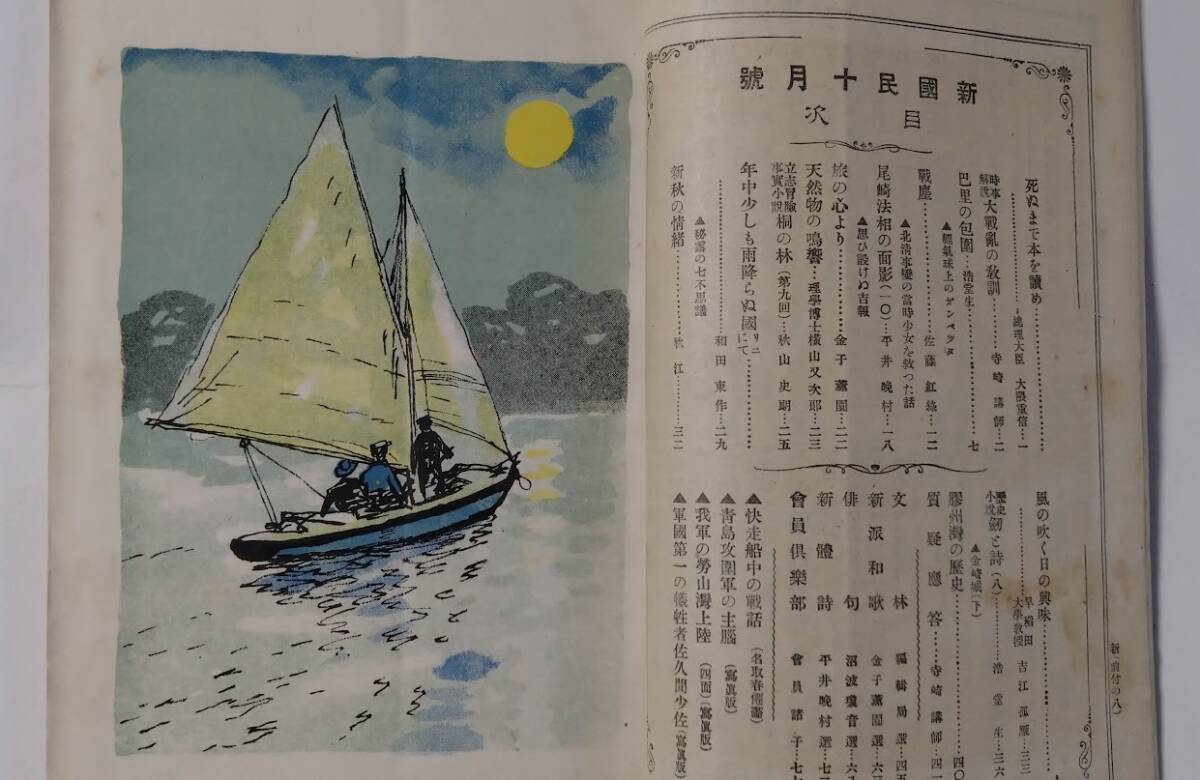 新國民十月號
目次
死ぬまで本を讀め……總理大臣 大隈重信…一
時事解説 大戰亂の敎訓……寺崎講師…二
巴里の包圍……浩堂生…七
▲輕氣球上のガンベツタ
戰塵……佐藤紅綠…一二
▲北淸事變の當時少女を救つた話
尾崎法相の面影(一〇)…平井晚村…一八
▲思ひ設けぬ吉報
旅の心より……金子薰園…二二
天然物の鳴響…理學博士橫山又次郎…二三
立志冒險事實小說 桐の林(第九回)…秋山史朗…二五
年中少しも雨降らぬ國にて……和田東作…二九
▲秘露の七不思議
新秋の情緖……秋江…三二
風の吹く日の興味……早稻田大學敎授 吉江孤雁…三三
歷史小說 劒と詩(八)……浩堂生…三六
▲金崎城(下)
膠州灣の歷史……四〇
質疑應答……寺崎講師…四
文林 編輯局選…四五
新派和歌 金子薰園選…六
俳句 沼波瓊音選…六
新體詩 平井晚村選…七
會員俱樂部 會員諸子…七
▲快走船中の戰話(名取春僊畫)
▲靑島攻圍軍の主腦(寫眞版)
▲我軍の勞山灣上陸(四面)(寫眞版)
▲軍國第一の犧牲者佐久間少佐(寫眞版)
新(前付の八)